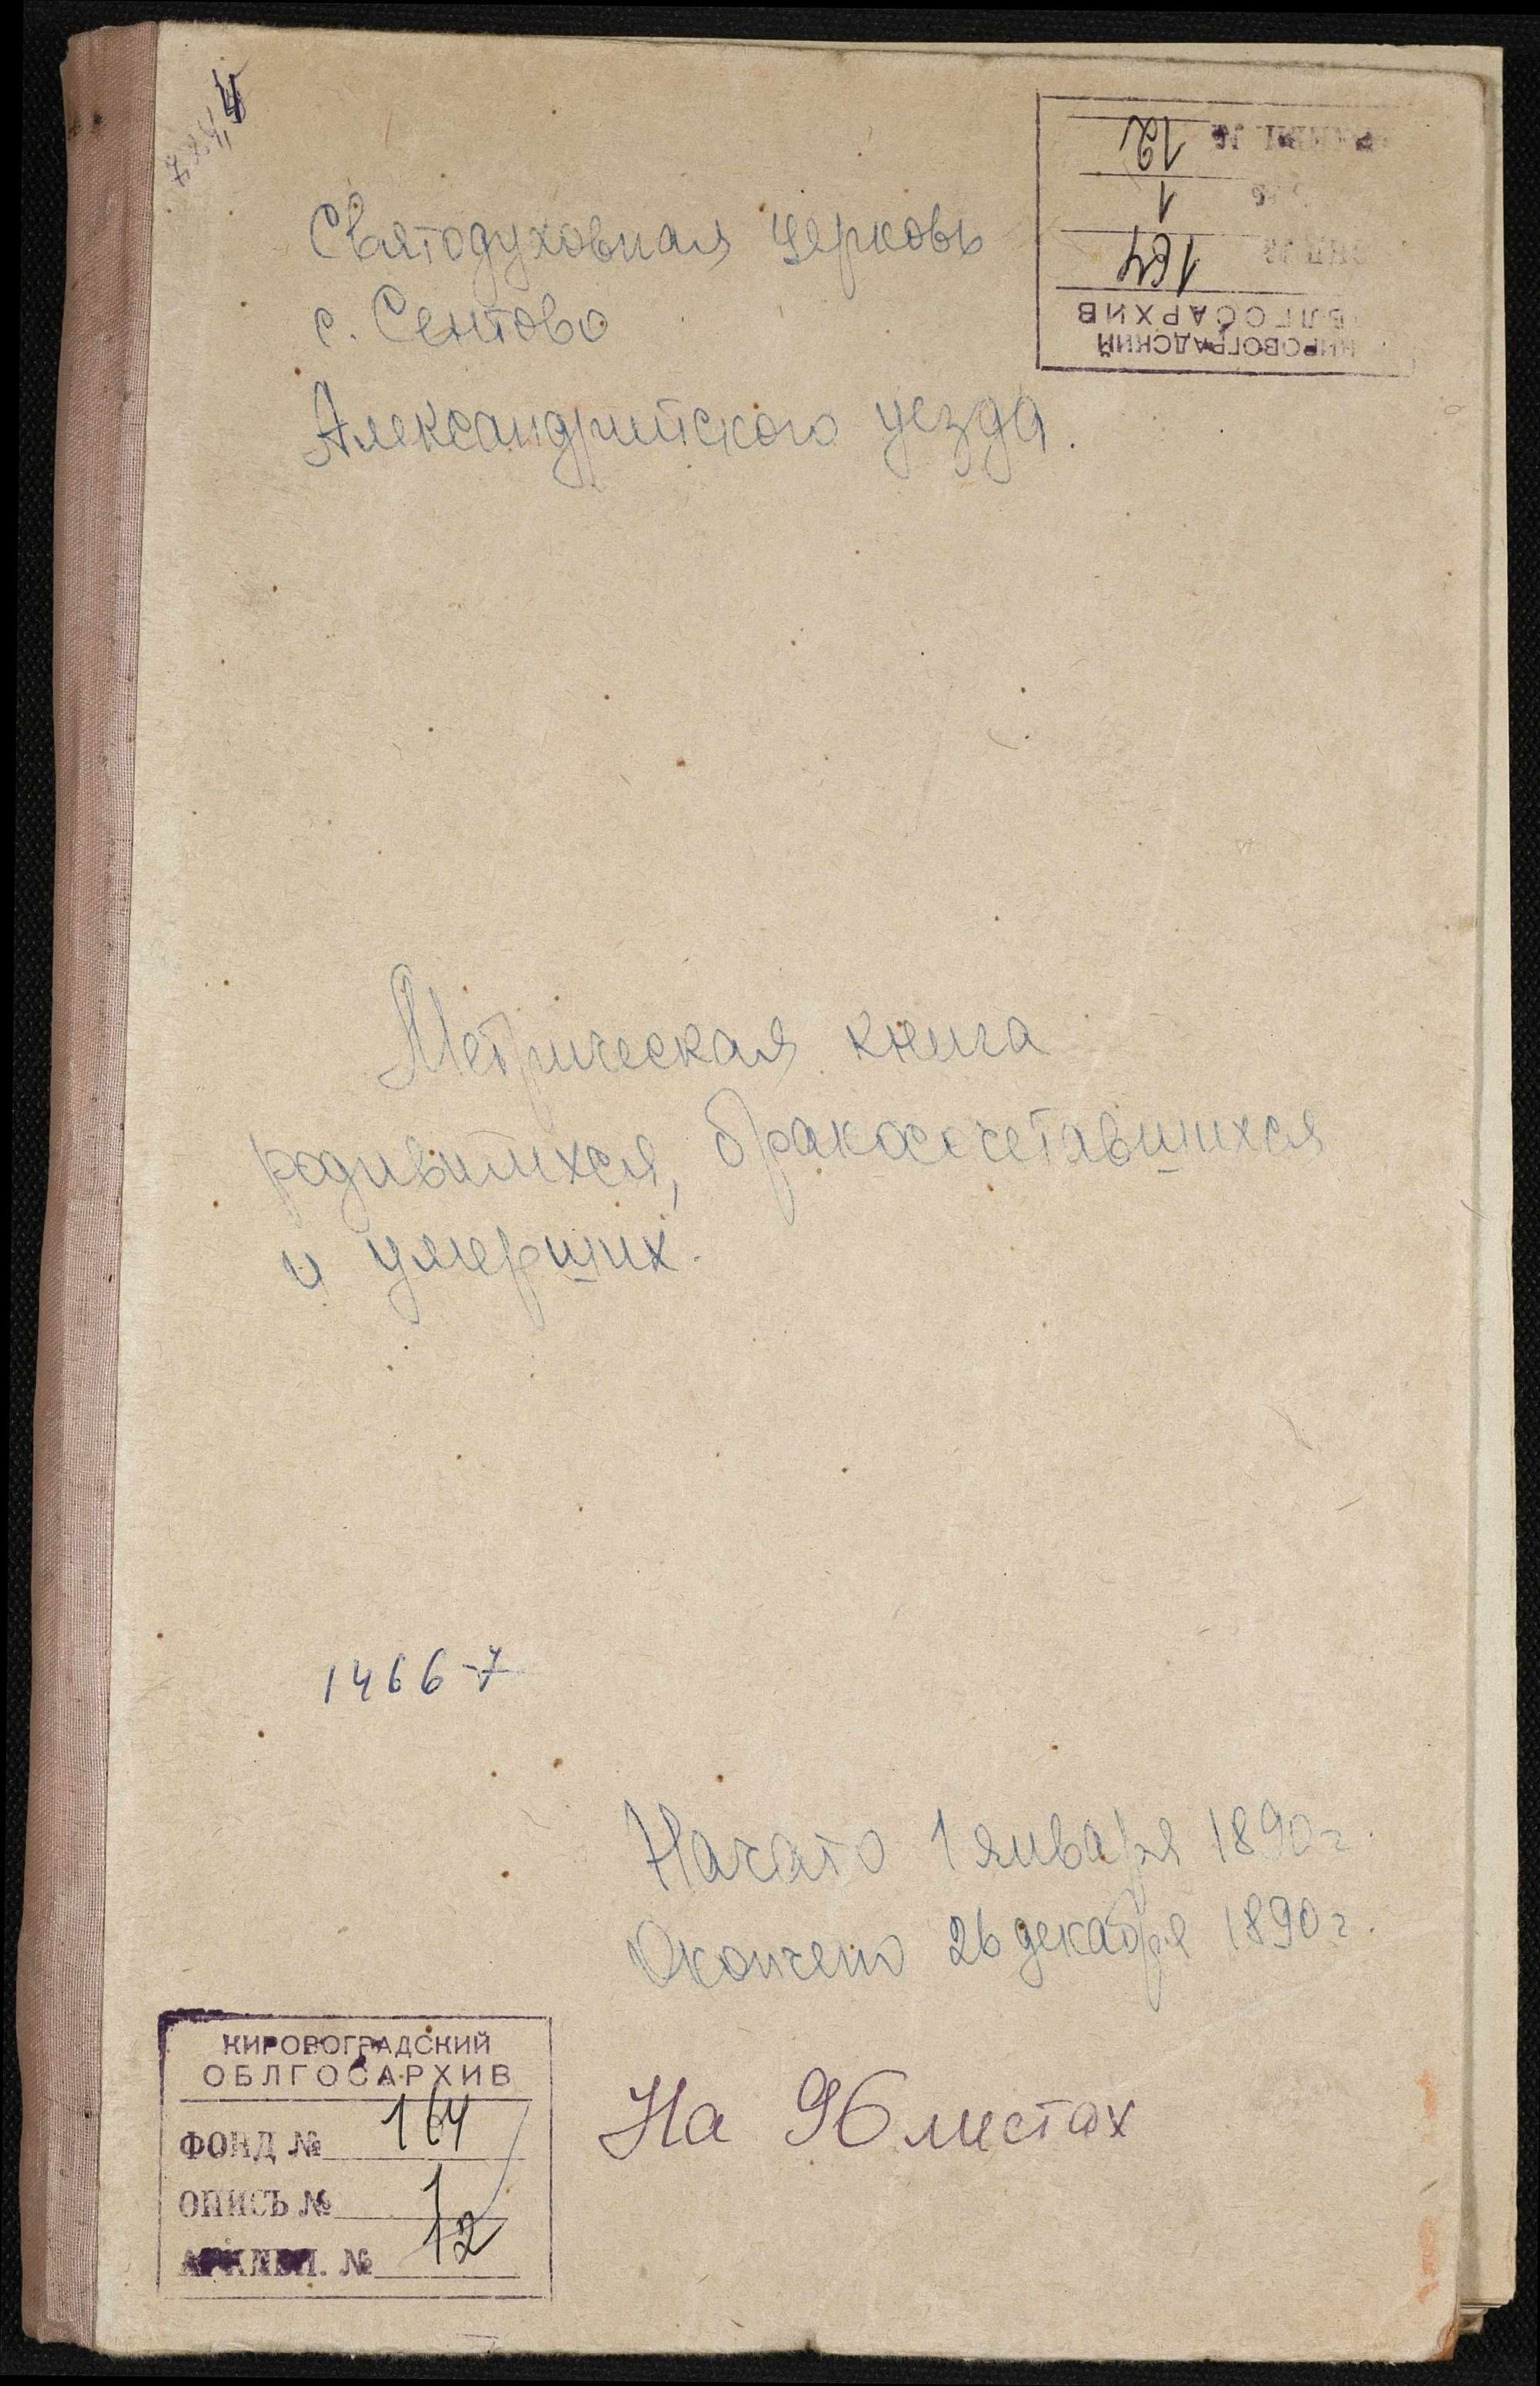 Святодуховная церковь
с. Сентово
Александрийского уезда.
12
1
164
КИРОВОГРАДСКИЙ
ОБЛГОСАРХИВ
Метрическая книга
родившихся, бракосочетавшихся
и умерших.
1466-7
Начато 1 января 1890г.
Окончено 26 декабря 1890г.
КИРОВОГРАДСКИЙ
ОБЛГОСАРХИВ
ФОНД № 164
ОПИСЬ № 1
АРХИВН. № 12
На 96 листах